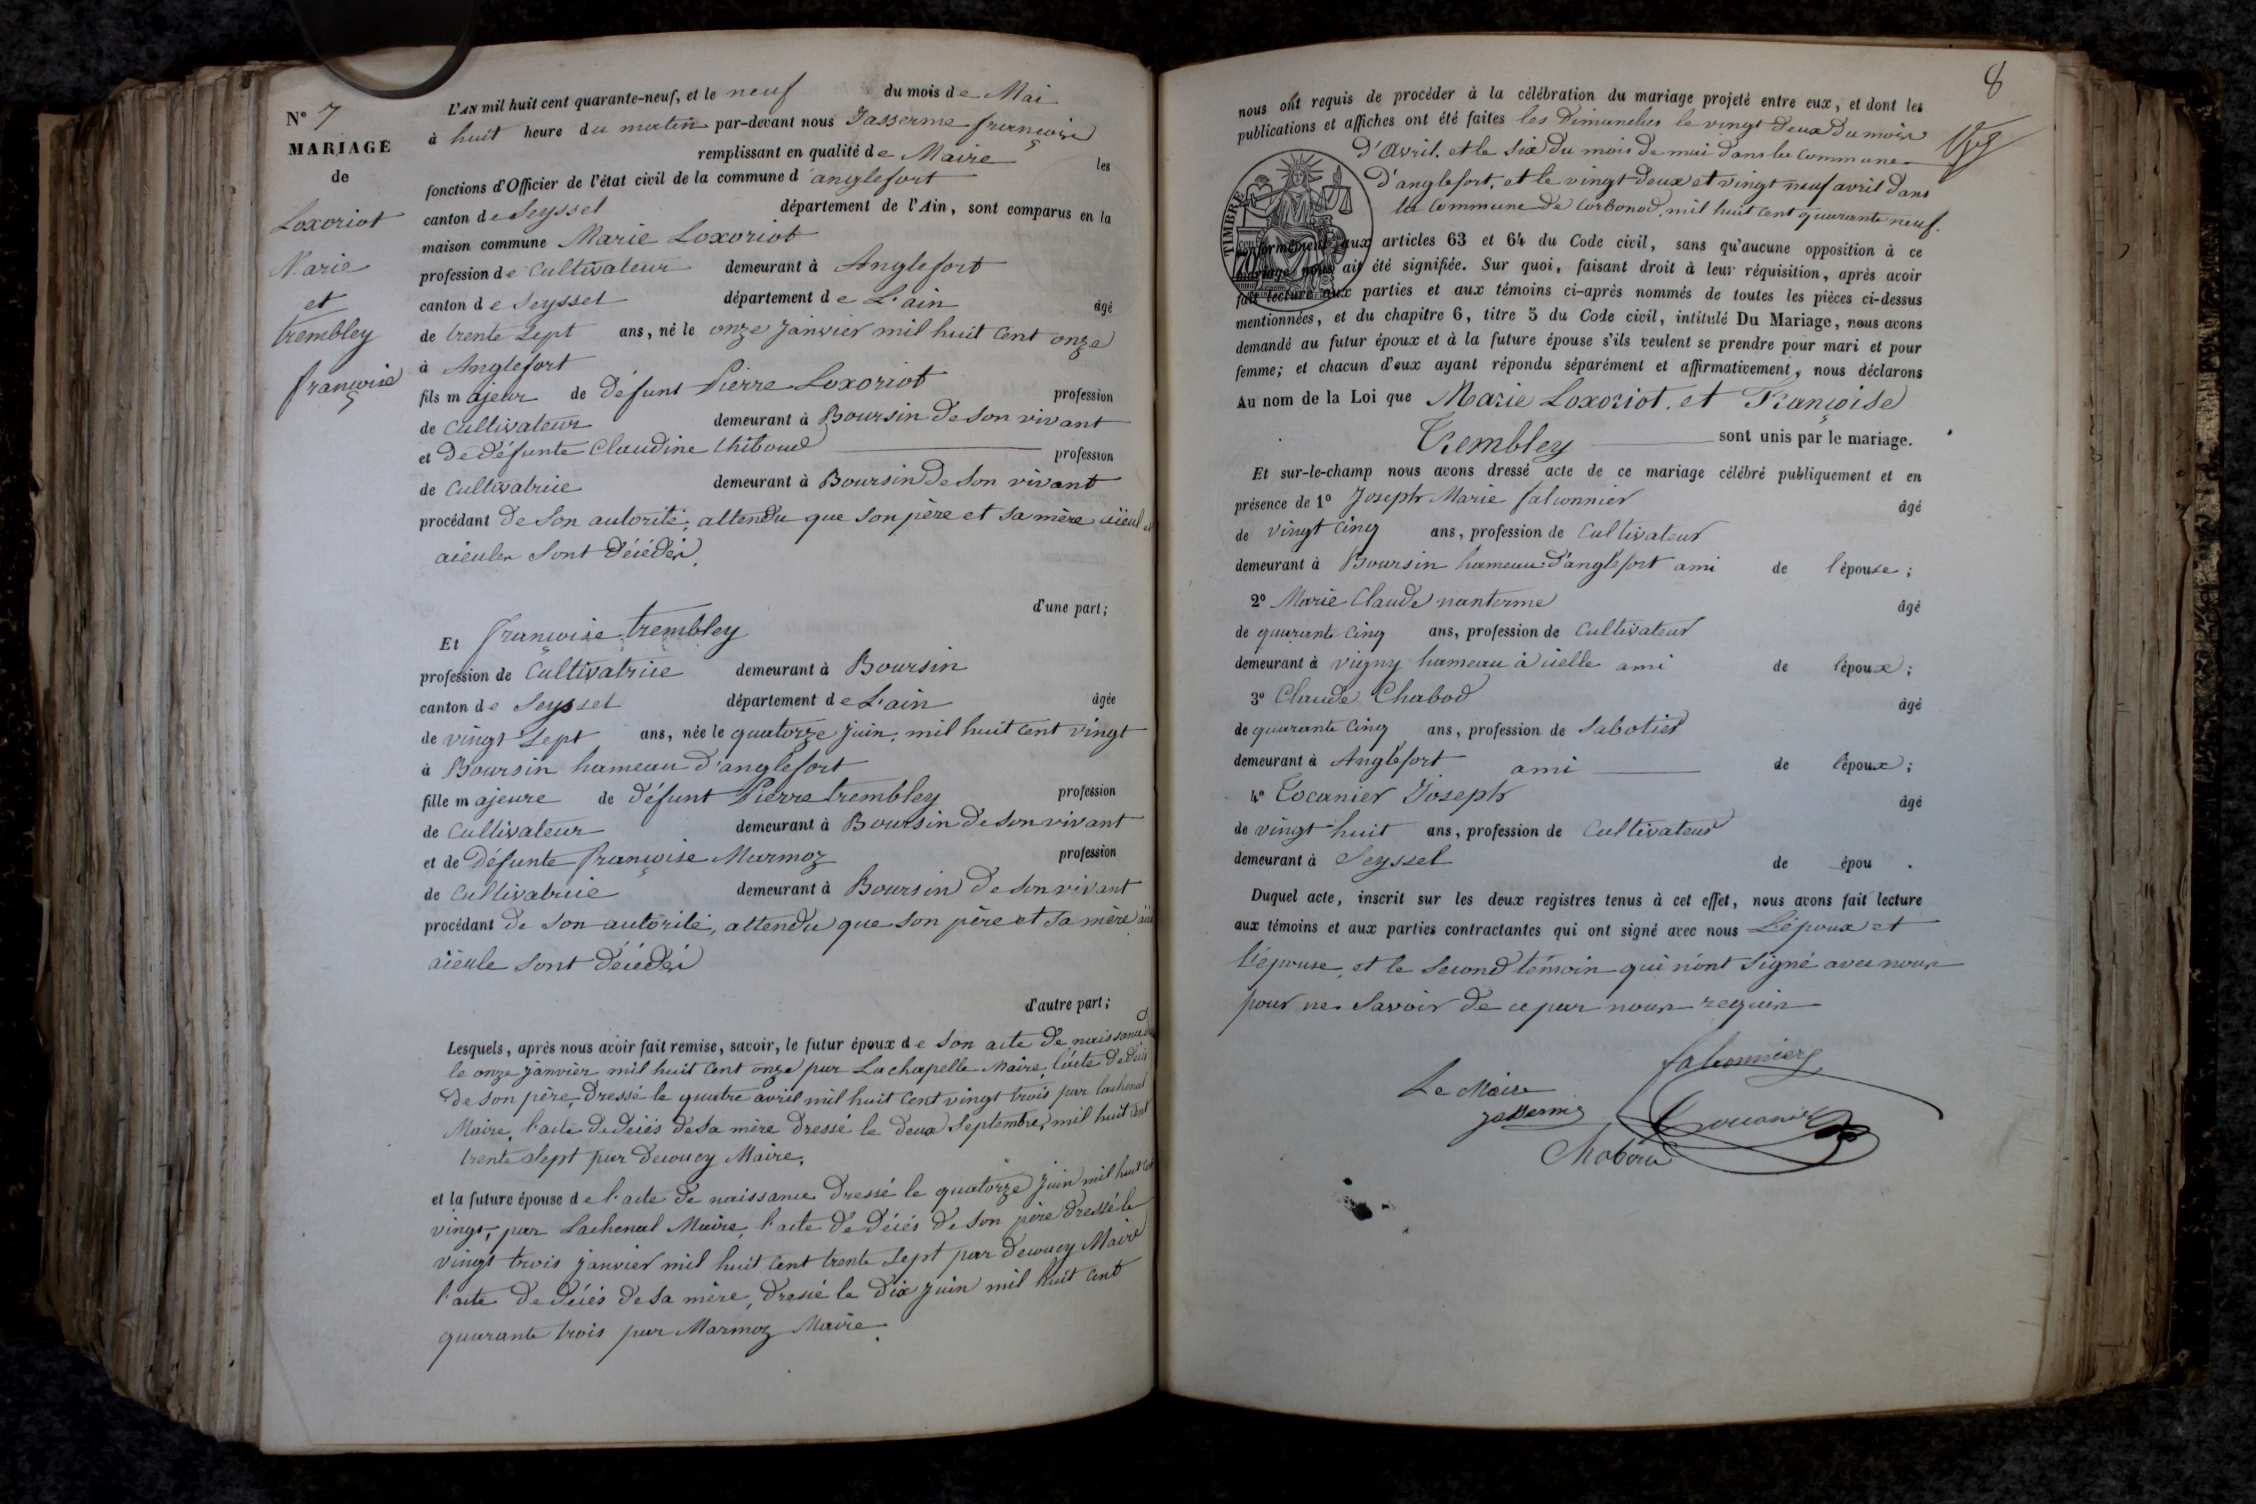 N° 7
MARIAGE
de
Loxoriot
Marie
et
trembley
françoise
L'AN mil huit cent quarante-neuf, et le neuf du mois de Mai
à huit heure du matin par-devant nous Jasserme françois
remplissant en qualité de Maire les
fonctions d'Officier de l'état civil de la commune d'anglefort
canton de Seyssel département de l'Ain, sont comparus en la
maison commune Marie Loxoriot
profession de Cultivateur demeurant à Anglefort
canton de Seyssel département de L'ain âgé
de trente Sept ans, né le onze Janvier mil huit Cent onze
à Anglefort
fils majeur de défunt Pierre Loxoriot profession
de Cultivateur demeurant à Boursin de Son vivant
et de défunte Claudine thiboud profession
de Cultivatrice demeurant à Boursin de Son vivant
procédant de Son autorité, attendu que son père et sa mère aïeul et
aïeules Sont décédés.
d'une part;
Et françoise trembley
profession de Cultivatrice demeurant à Boursin
canton de Seyssel département de L'ain âgée
de vingt Sept ans, née le quatorze juin, mil huit Cent vingt
à Boursin hameau d'anglefort
fille majeure de défunt Pierre trembley profession
de Cultivateur demeurant à Boursin de Son vivant
et de Défunte françoise Marmoz profession
de Cultivatrice demeurant à Boursin de Son vivant
procédant de Son autorité, attendu que son père et sa mère
aïeule sont décédés
d'autre part;
Lesquels, après nous avoir fait remise, savoir, le futur époux de son acte de naissance
le onze janvier mil huit Cent onze par Lachapelle Maire, l'acte de décès
de son père, Dressé le quatre avril mil huit Cent vingt trois par lachenal
Maire, l'acte de décès de Sa mère Dressé le deux Septembre, mil huit Cent
trente Sept par Decoucy Maire,
et la future épouse de l'acte de naissance Dressé le quatorze juin mil huit Cent
vingt, par Lachenal Maire, l'acte de décès de son père Dressé le
vingt trois janvier mil huit Cent trente Sept par Decoucy Maire
l'acte de décès de Sa mère, Dressé le Dix juin mil huit Cent
quarante trois par Marmoz Maire.
8
nous ont requis de procéder à la célébration du mariage projeté entre eux, et dont les
publications et affiches ont été faites les Dimanches le vingt deux Du mois
D'Avril, et le Six Du mois de mai dans la Commune
D'anglefort, et le vingt Deux et vingt neuf avril Dans
la Commune De Corbonod, mil huit Cent quarante neuf.
TIMBRE
conformément aux articles 63 et 64 du Code civil, sans qu'aucune opposition à ce
mariage nous ait été signifiée. Sur quoi, faisant droit à leur réquisition, après avoir
fait lecture aux parties et aux témoins ci-après nommés de toutes les pièces ci-dessus
mentionnées, et du chapitre 6, titre 5 du Code civil, intitulé Du Mariage, nous avons
demandé au futur époux et à la future épouse s'ils veulent se prendre pour mari et pour
femme; et chacun d'eux ayant répondu séparément et affirmativement, nous déclarons
Au nom de la Loi que Marie Loxoriot, et Françoise
Trembley sont unis par le mariage.
Et sur-le-champ nous avons dressé acte de ce mariage célébré publiquement et en
présence de 1° Joseph Marie falconnier âgé
de vingt Cinq ans, profession de Cultivateur
demeurant à Boursin hameau d'anglefort ami de l'épouse;
2° Marie Claude nanterme âgé
de quarante Cinq ans, profession de Cultivateur
demeurant à vigny hameau à icelle ami de l'époux;
3° Claude Chabod âgé
de quarante Cinq ans, profession de Sabotier
demeurant à Anglefort ami de l'époux;
4° Tocanier Joseph âgé
de vingt huit ans, profession de Cultivateur
demeurant à Seyssel de épou .
Duquel acte, inscrit sur les deux registres tenus à cet effet, nous avons fait lecture
aux témoins et aux parties contractantes qui ont signé avec nous L'époux et
l'épouse, et le Second témoin qui n'ont Signé avec nous
pour ne Savoir de ce par nous requis
falconnier
Le Maire